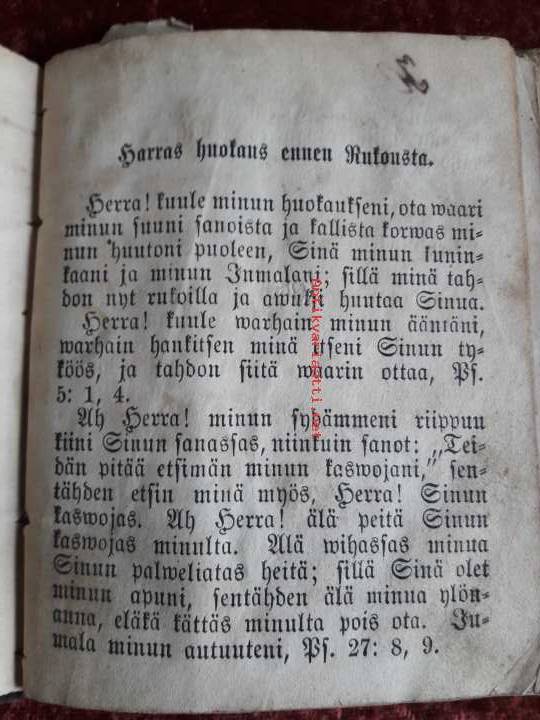 Harras huokaus ennen Rukousta.
Herra! kuule minun huokaukseni, ota waari
minun suuni sanoista ja kallista korwas mi-
nun huutoni puoleen, Sinä minun kunin-
kaani ja minun Jumalani; sillä minä tah-
don nyt rukoilla ja awuksi huutaa Sinua.
Herra! kuule warhain minun ääntäni,
warhain hankitsen minä itseni Sinun ty-
köös, ja tahdon siitä waarin ottaa, Ps.
5: 1, 4.
Ah Herra! minun sydämmeni riippuu
kiini Sinun sanassas, niinkuin sanot: „Tei-
dän pitää etsimän minun kaswojani,” sen-
tähden etsin minä myös, Herra! Sinun
kaswojas. Ah Herra! älä peitä Sinun
kaswojas minulta. Älä wihassas minua
Sinun palweliatas heitä; sillä Sinä olet
minun apuni, sentähden älä minua ylön-
anna, eläkä kättäs minulta pois ota. Ju-
mala minun autuuteni, Ps. 27: 8, 9.